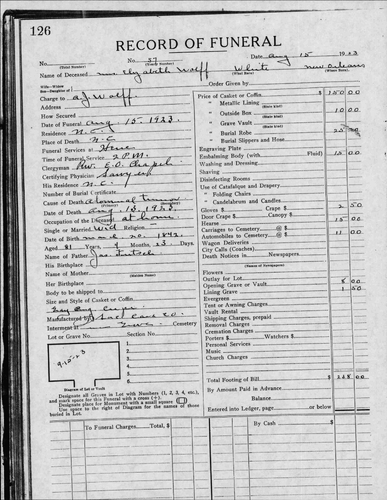 126
RECORD OF FUNERAL
No. No. 57 Date Aug 15 1923
(Total Number) (Yearly Number)
Name of Deceased Mrs Elizabeth Wolff White New Orleans
(What Race) (Where Born)
Wife—Widow
Son—Daughter of Order Given by
Charge to A J Wolff.
Address
How Secured
Date of Funeral Aug. 15. 1923.
Residence N.C.
Place of Death N.C.
Funeral Services at Home
Time of Funeral Service 2 P.M.
Clergyman Rev. E.O.
Certifying Physician Sawyer
His Residence N.C.
Number of Burial Certificate
Cause of Death Abdominal tumor
Date of Death Aug. 13. 1923
Occupation of the Deceased at home
Single or Married Wid Religion
Date of Birth March 20. 1842.
Aged 81 Years, 4 Months, 23 Days.
Name of Father Jas.
His Birthplace
Name of Mother
(Maiden Name)
Her Birthplace
Body to be shipped to
Size and Style of Casket or Coffin
Manufactured by
Interment at Cemetery
Lot or Grave No. Section No.
9-15-23
Diagram of Lot or Vault
Designate all Graves in Lot with Numbers (1, 2, 3, 4, etc.),
and mark space for this Funeral with a cross (+).
Designate place for Monument with a small square
Use space to the right of Diagram for names of those
buried in Lot.
Price of Casket or Coffin $ 150 00
" Metallic Lining
(State Kind)
" Outside Box 10 00
(State Kind)
" Grave Vault
(State Kind)
" Burial Robe
(State Kind)
" Burial Slippers and Hose
Engraving Plate
Embalming Body (with Fluid) 15 00
Washing and Dressing
Shaving
Disinfecting Rooms
Use of Catafalque and Drapery
" Folding Chairs
" Candelabrum and Candles
Gloves $ Crape $ 2 50
Door Crape $ Canopy $
Hearse 15 00
Carriages to Cemetery @ $
Automobiles to Cemetery @ $ 11 00
Wagon Deliveries
City Calls (Coaches)
Death Notices in Newspapers
(Names of Newspapers)
Flowers
Outlay for Lot
Opening Grave or Vault 8 00
Lining Grave 1 50
Evergreens
Tent or Awning Charges
Vault Rental
Shipping Charges, prepaid
Removal Charges
Cremation Charges
Porters $ Watchers $
Personal Services
Music
Church Charges
Total Footing of Bill $
By Amount Paid in Advance
Balance
Entered into Ledger, page or below
To Funeral Charges Total, $ By Cash $